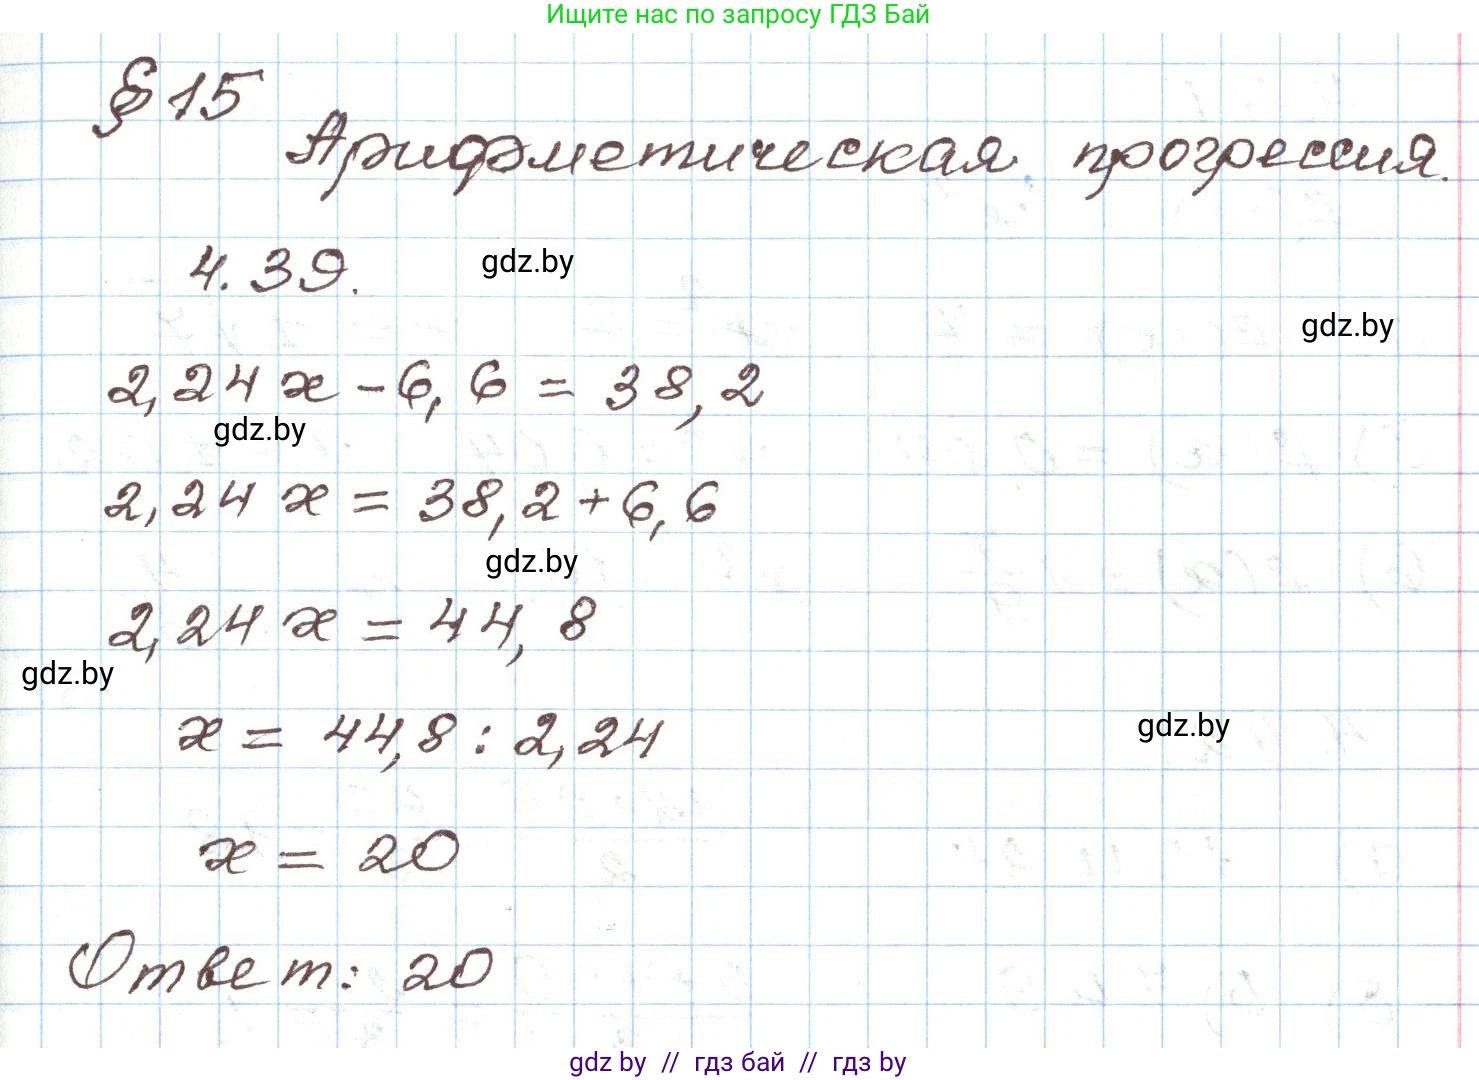 Ищите нас по запросу ГДЗ Бай
§ 15
Арифметическая прогрессия.
4.39.
gdz.by
gdz.by
2,24 x - 6,6 = 38,2
gdz.by
2,24 x = 38,2 + 6,6
gdz.by
2,24 x = 44,8
gdz.by
x = 44,8 : 2,24
gdz.by
x = 20
Ответ: 20
gdz by // гдз бай // гдз by